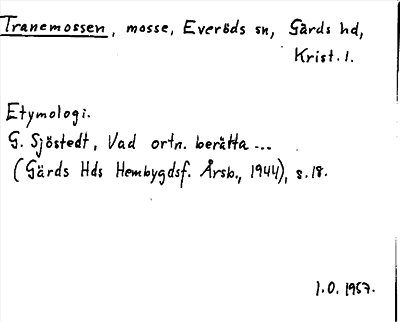 Tranemossen, mosse, Everöds sn, Gärds hd,
Krist. l.
Etymologi.
G. Sjöstedt, Vad ortn. berätta ...
(Gärds Hds Hembygdsf. Årsb., 1944), s. 18.
I.O. 1957.